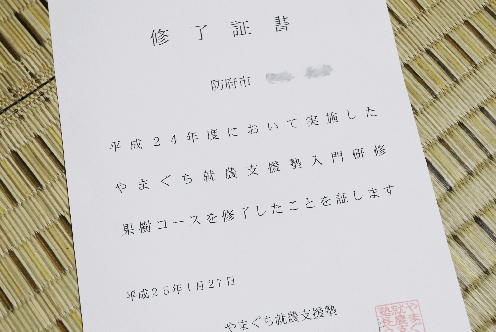 修了証書
防府市
平成24年度において実施した
やまぐち就農支援塾入門研修
果樹コースを修了したことを証します
平成25年1月27日
やまぐち就農支援塾